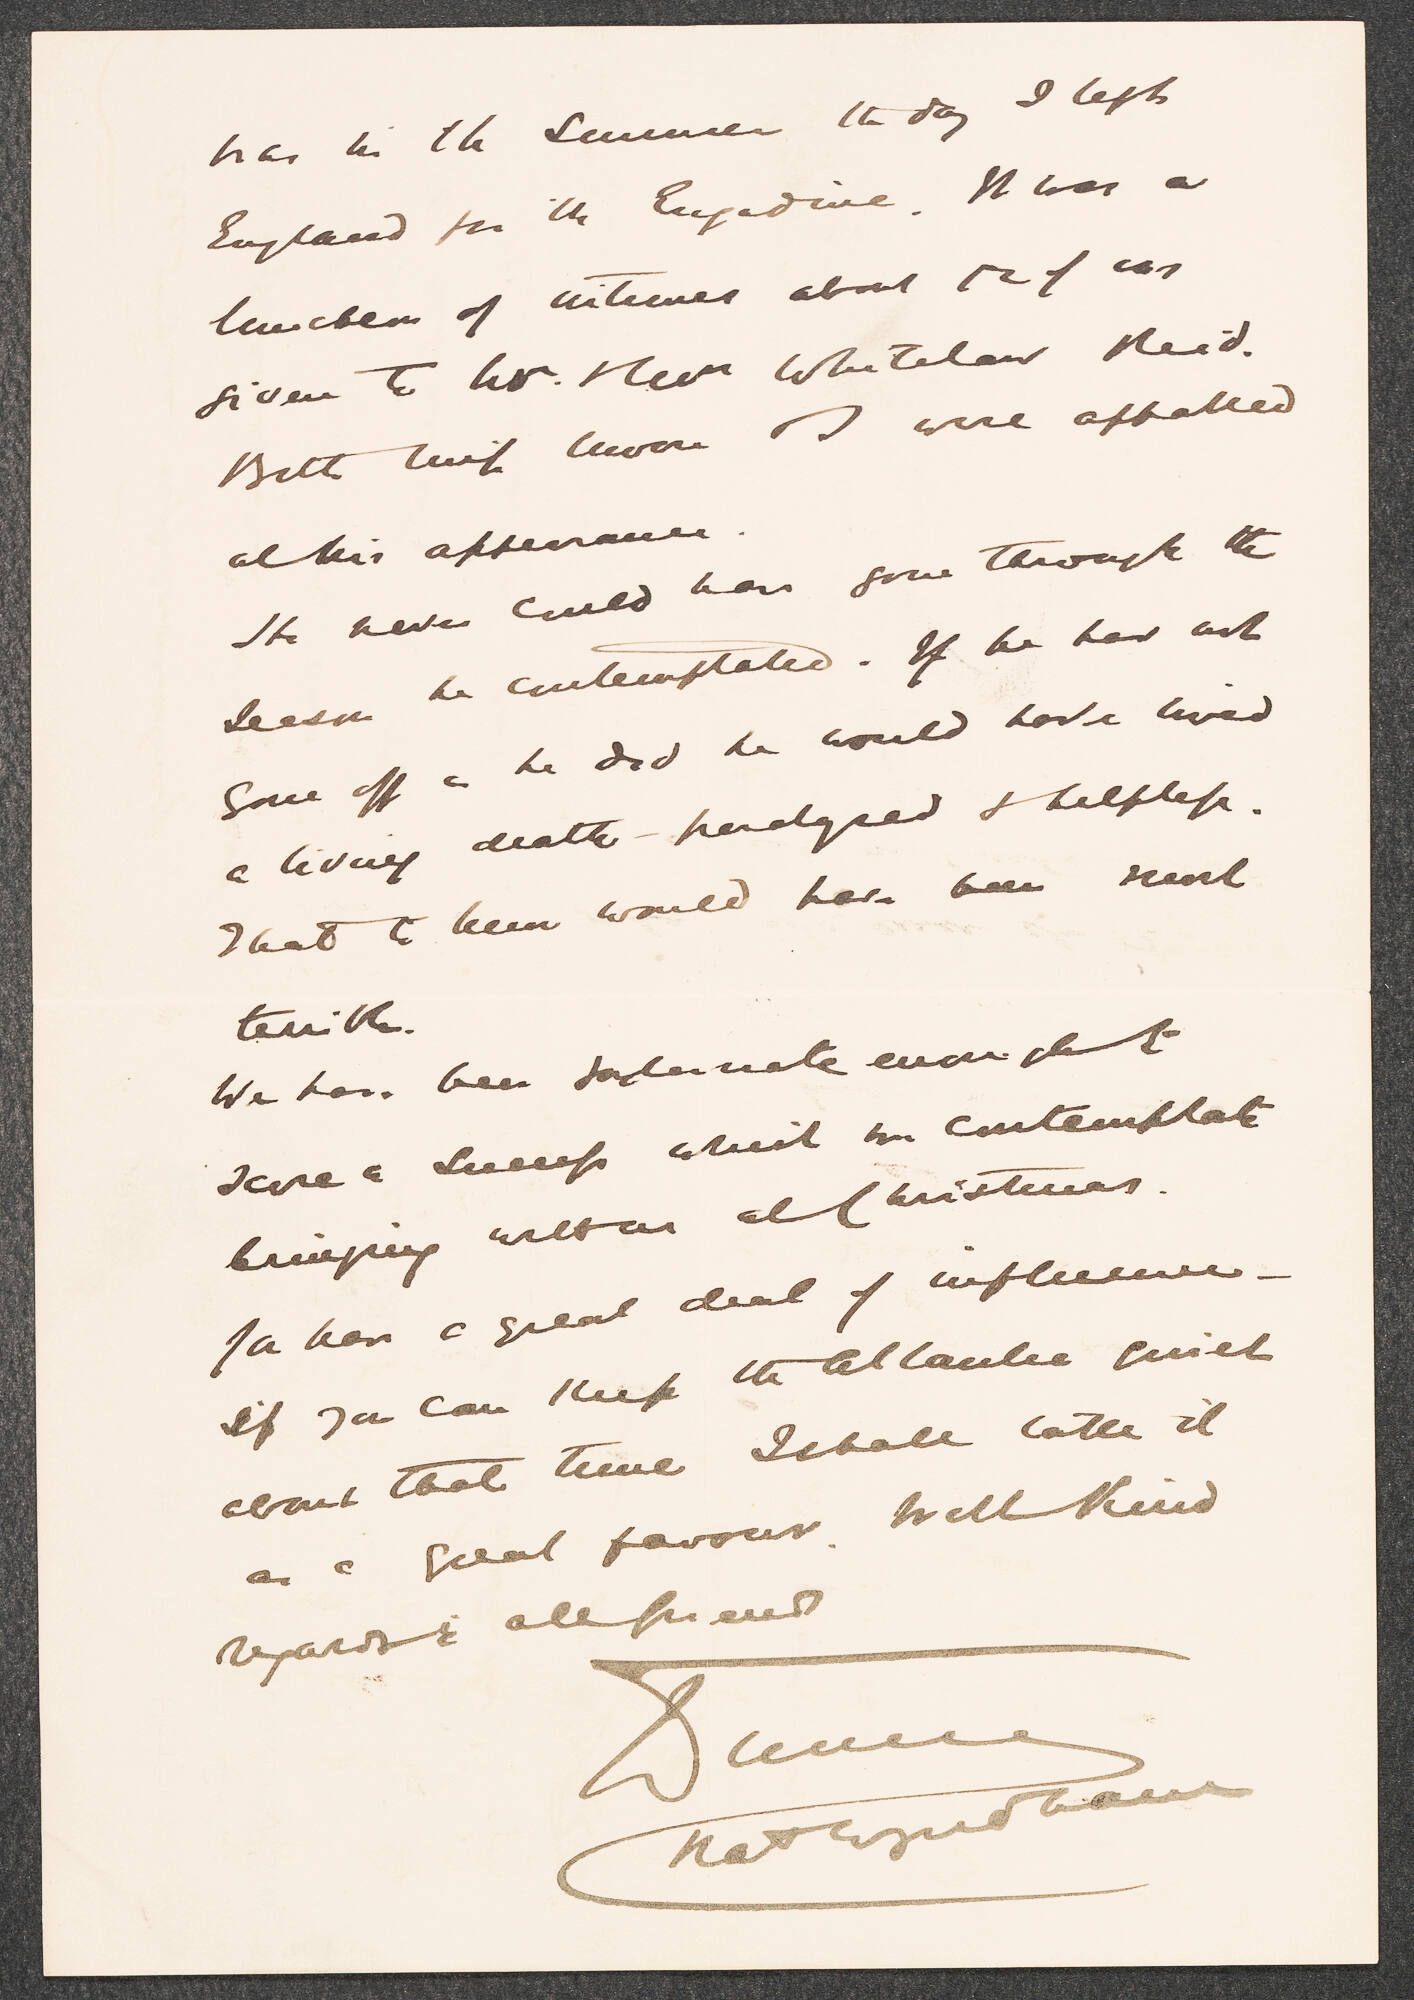 was in the Summer the day I left
England for the Engadine. It was a
luncheon of intimes about 12 of us
given to Mr. & Mrs Whitelaw Reid.
Both Miss Moore & I were appalled
at his appearance.
He never could have gone through the
Season he contemplated. If he had not
gone off as he did he would have lived
a living death - paralysed & helpless.
That to him would have been most
terrible.
We have been fortunate enough to
score a Success which we contemplate
bringing with us at Christmas.
You have a great deal of influence -
If you can keep the Atlantic quiet
about that time I shall take it
as a great favour. With Kind
regards to all friends
Sincerely
Chas Wyndham